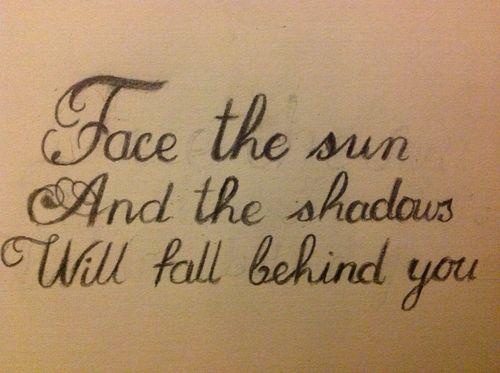 Face the sun
And the shadows
Will fall behind you